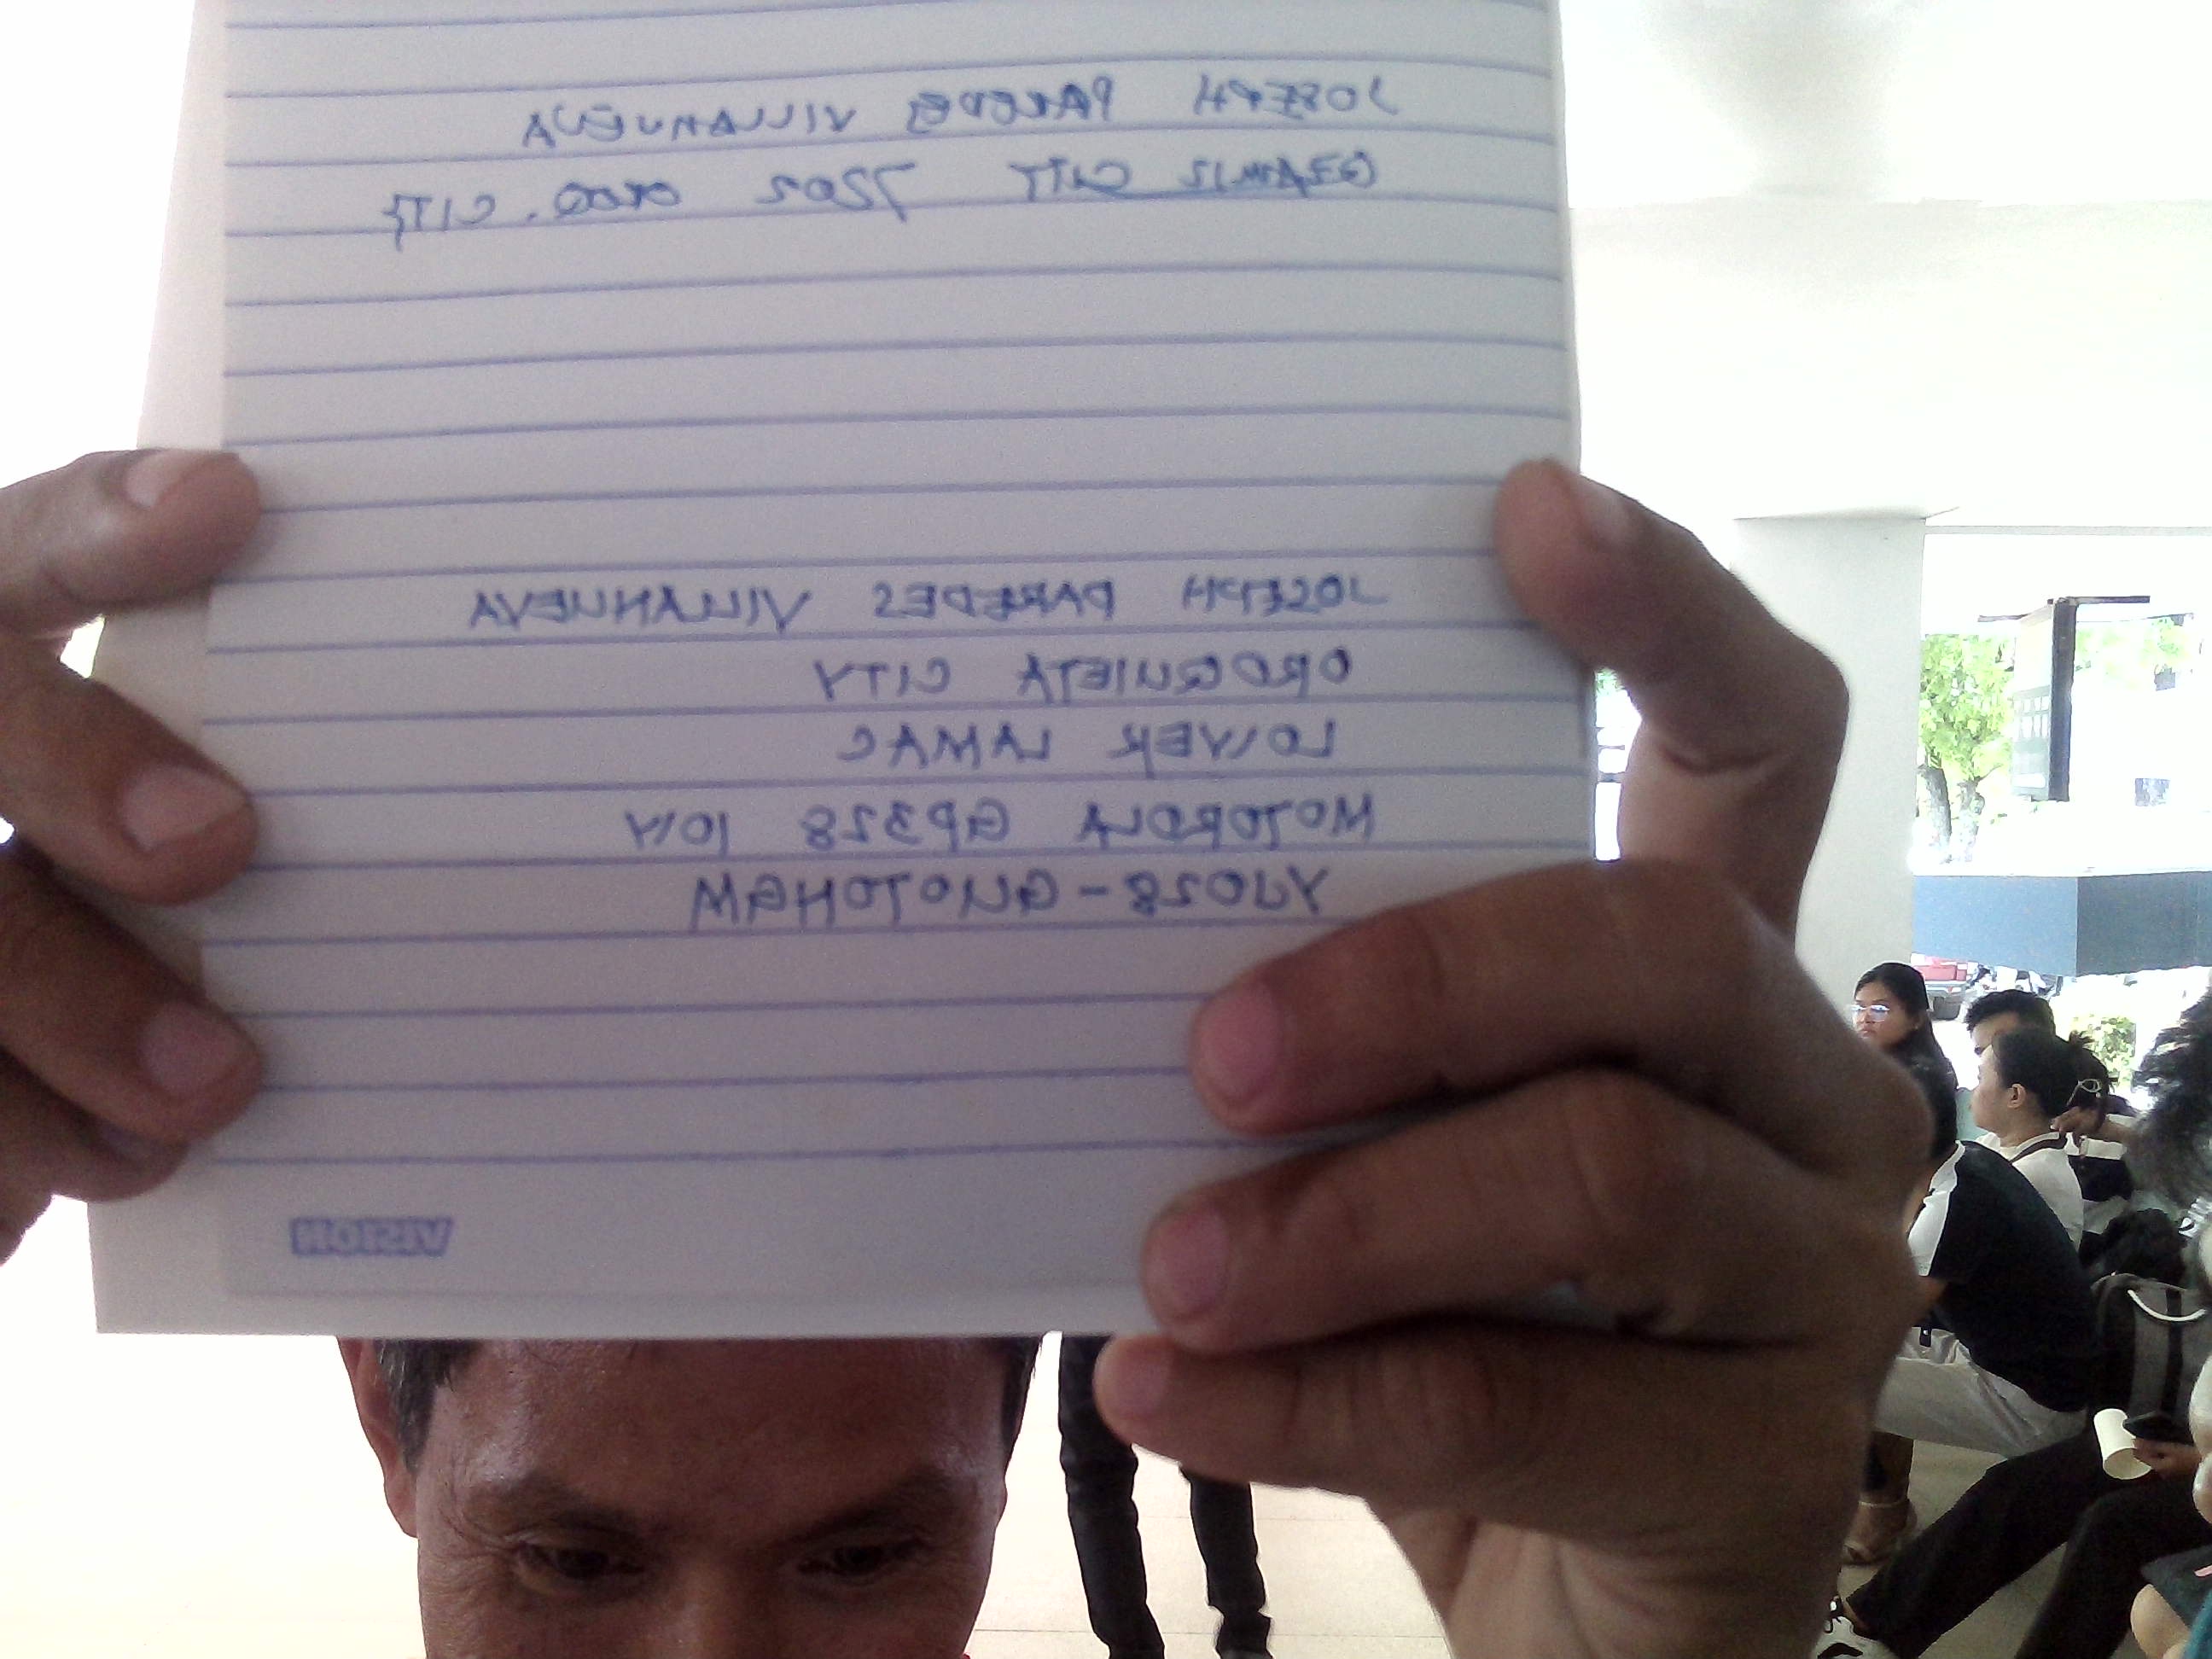 JOSEPH PAREDES VILLANUEVA
CITY 7202 OROQ. CITY
JOSEPH PAREDES VILLANUEVA
OROQUIETA CITY
LOWER LAMAC
MOTOROLA GP328
VISION